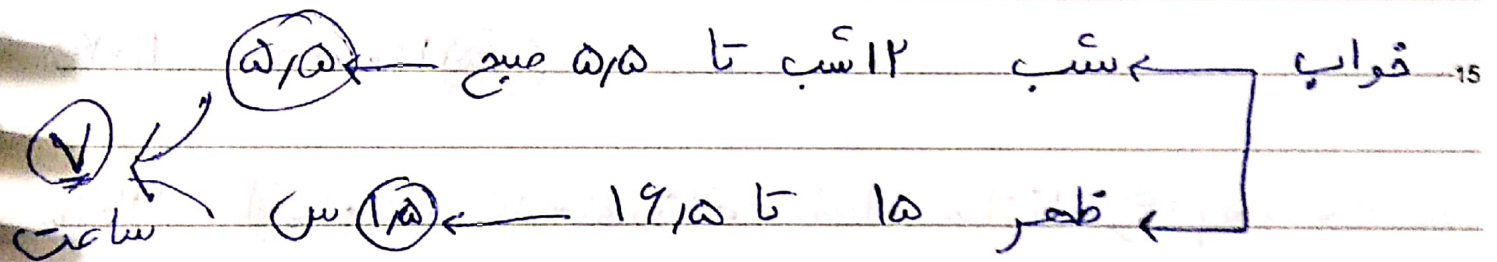 15 خواب ← شب ۱۲ شب تا ۵٫۵ صبح ← ۵٫۵
← ظهر ۱۵ تا ۱۶٫۵ ← ۱٫۵ س
۷ ساعت